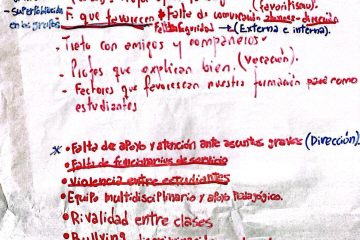 (favoritismo).
- F que favorecen • Falta de comunicación alumno - dirección
- Superpoblación en los grados
Falta Seguridad → (Externa e interna).
- Trato con amigos y compañeros.
- Profes que explican bien. (vocación).
- Factores que favorescan nuestra formación para como estudiantes
* • Falta de apoyo y atención ante asuntos graves (Dirección).
• Falta de funcionarios de servicio
• Violencia entre estudiantes
• Equipo multidisciplinario y apoyo pedagógico.
• Rivalidad entre clases
• Bullying